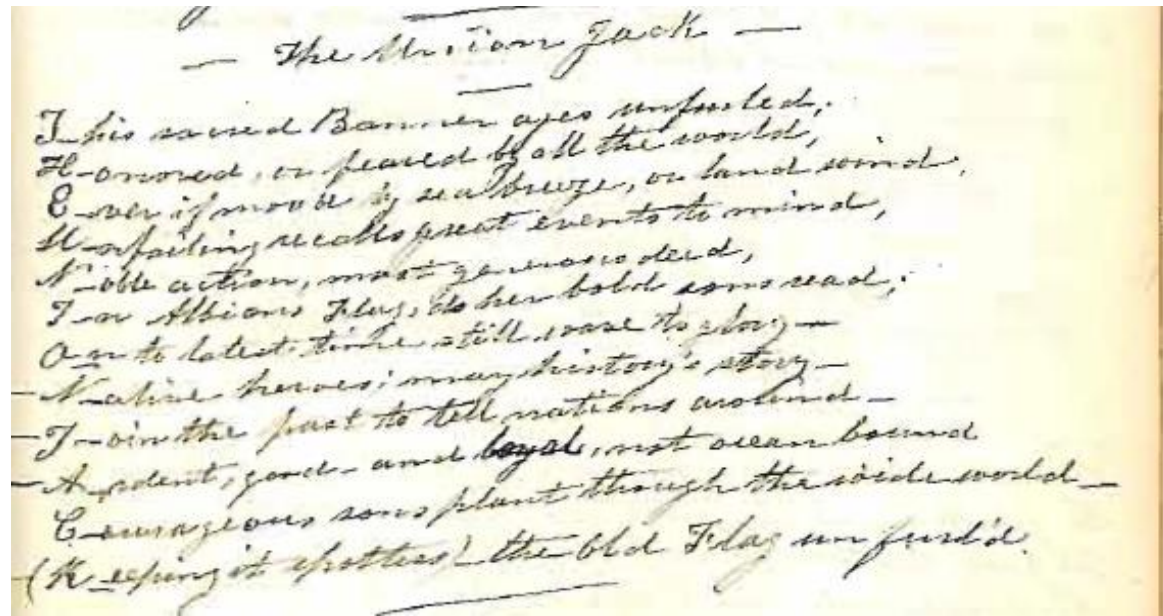 — The Union Jack —
T-his sacred Banner ages unfurled;
H-onored, or feared by all the world,
E-ver if moved by sea breeze, or land wind,
U-nfailing recalls great events to mind,
N-oble action, most generous deed,
I-n Albions Flag, do her bold sons read;
O-n to latest time still wave to glory—
-N-ative heroes; may history's story—
-J-oin the past to tell nations around—
-A-rdent, good- and loyal, not ocean bound
C-ourageous sons plant through the wide world—
-(K-eeping it spotless! the Old Flag unfurl'd.